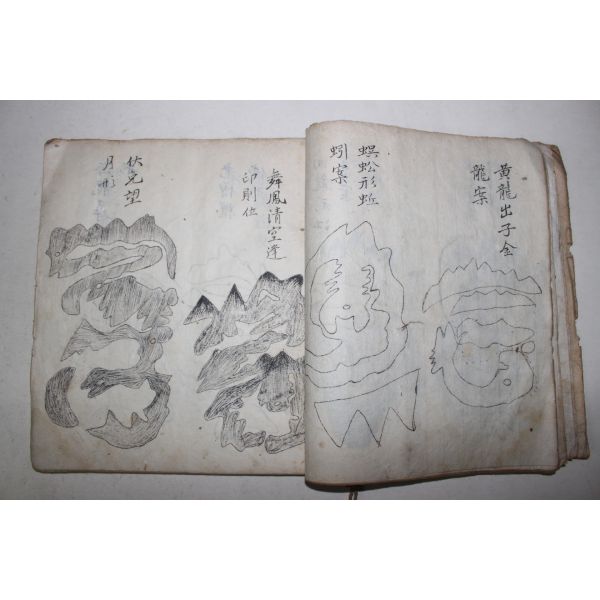 黃龍出子全
龍案
蜈蚣形蚯
蚓案
舞鳳淸空逢
印則位
伏兎望
月形